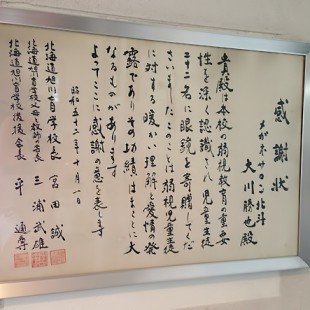 感謝状
メガネサロン北斗
大川勝也殿
貴殿は本校の弱視教育の重要
性を深く認識され児童生徒
二十二名に眼鏡を寄贈してくだ
さいましたこのことは弱視児童生徒
に対する暖かい理解と愛情の発
露でありその功績はまことに大
なるものがあります
よってここに感謝の意を表します
昭和五十二年十月一日
北海道旭川盲学校長 富田誠
北海道旭川盲学校父母と教師の会長 三浦武雄
北海道旭川盲学校後援会長 平通孝